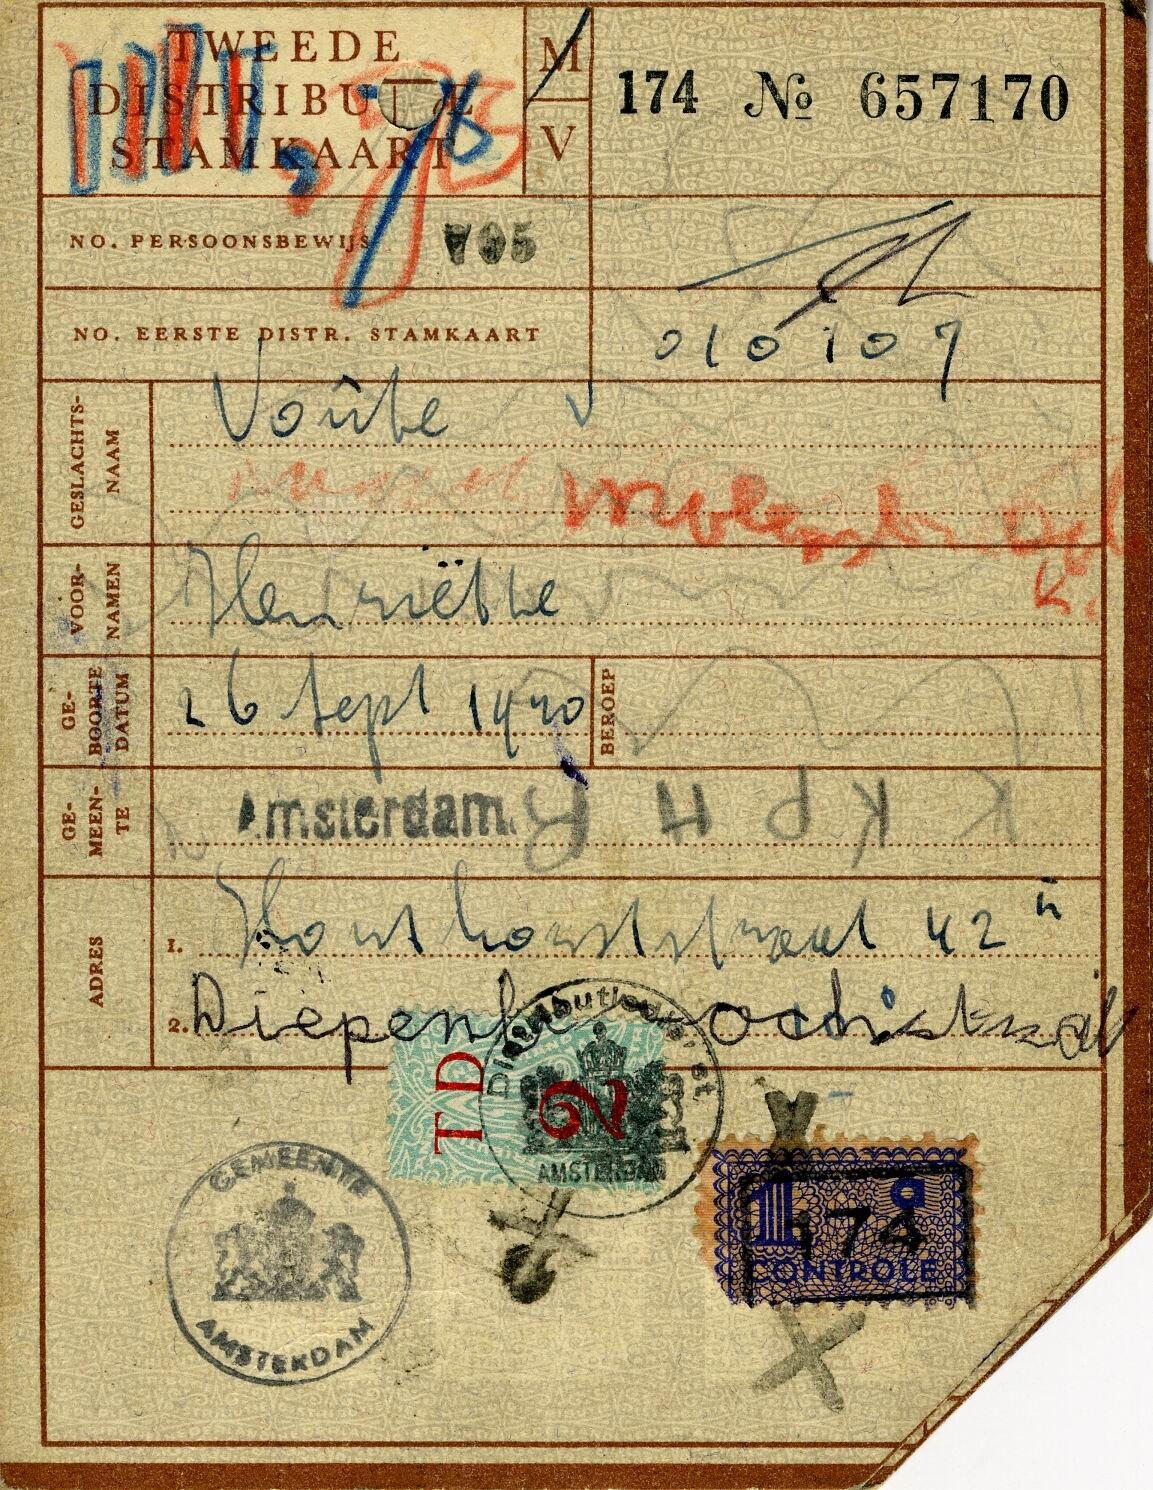 TWEEDE
DISTRIBUTIE
STAMKAART
M
V
174 № 657170
NO. PERSOONSBEWIJS 705
NO. EERSTE DISTR. STAMKAART 010107
GESLACHTS-
NAAM
Voûte
VOOR-
NAMEN
Henriëtte
GE-
BOORTE
DATUM
26 Sept 1920
BEROEP
GE-
MEEN-
TE
Amsterdam
B H P K K
ADRES
1. Honthorststraat 42 II
2. Diepenbrockstraat
Distributiedienst
AMSTERDAM
TD 2
GEMEENTE
AMSTERDAM
1 a
174
CONTROLE